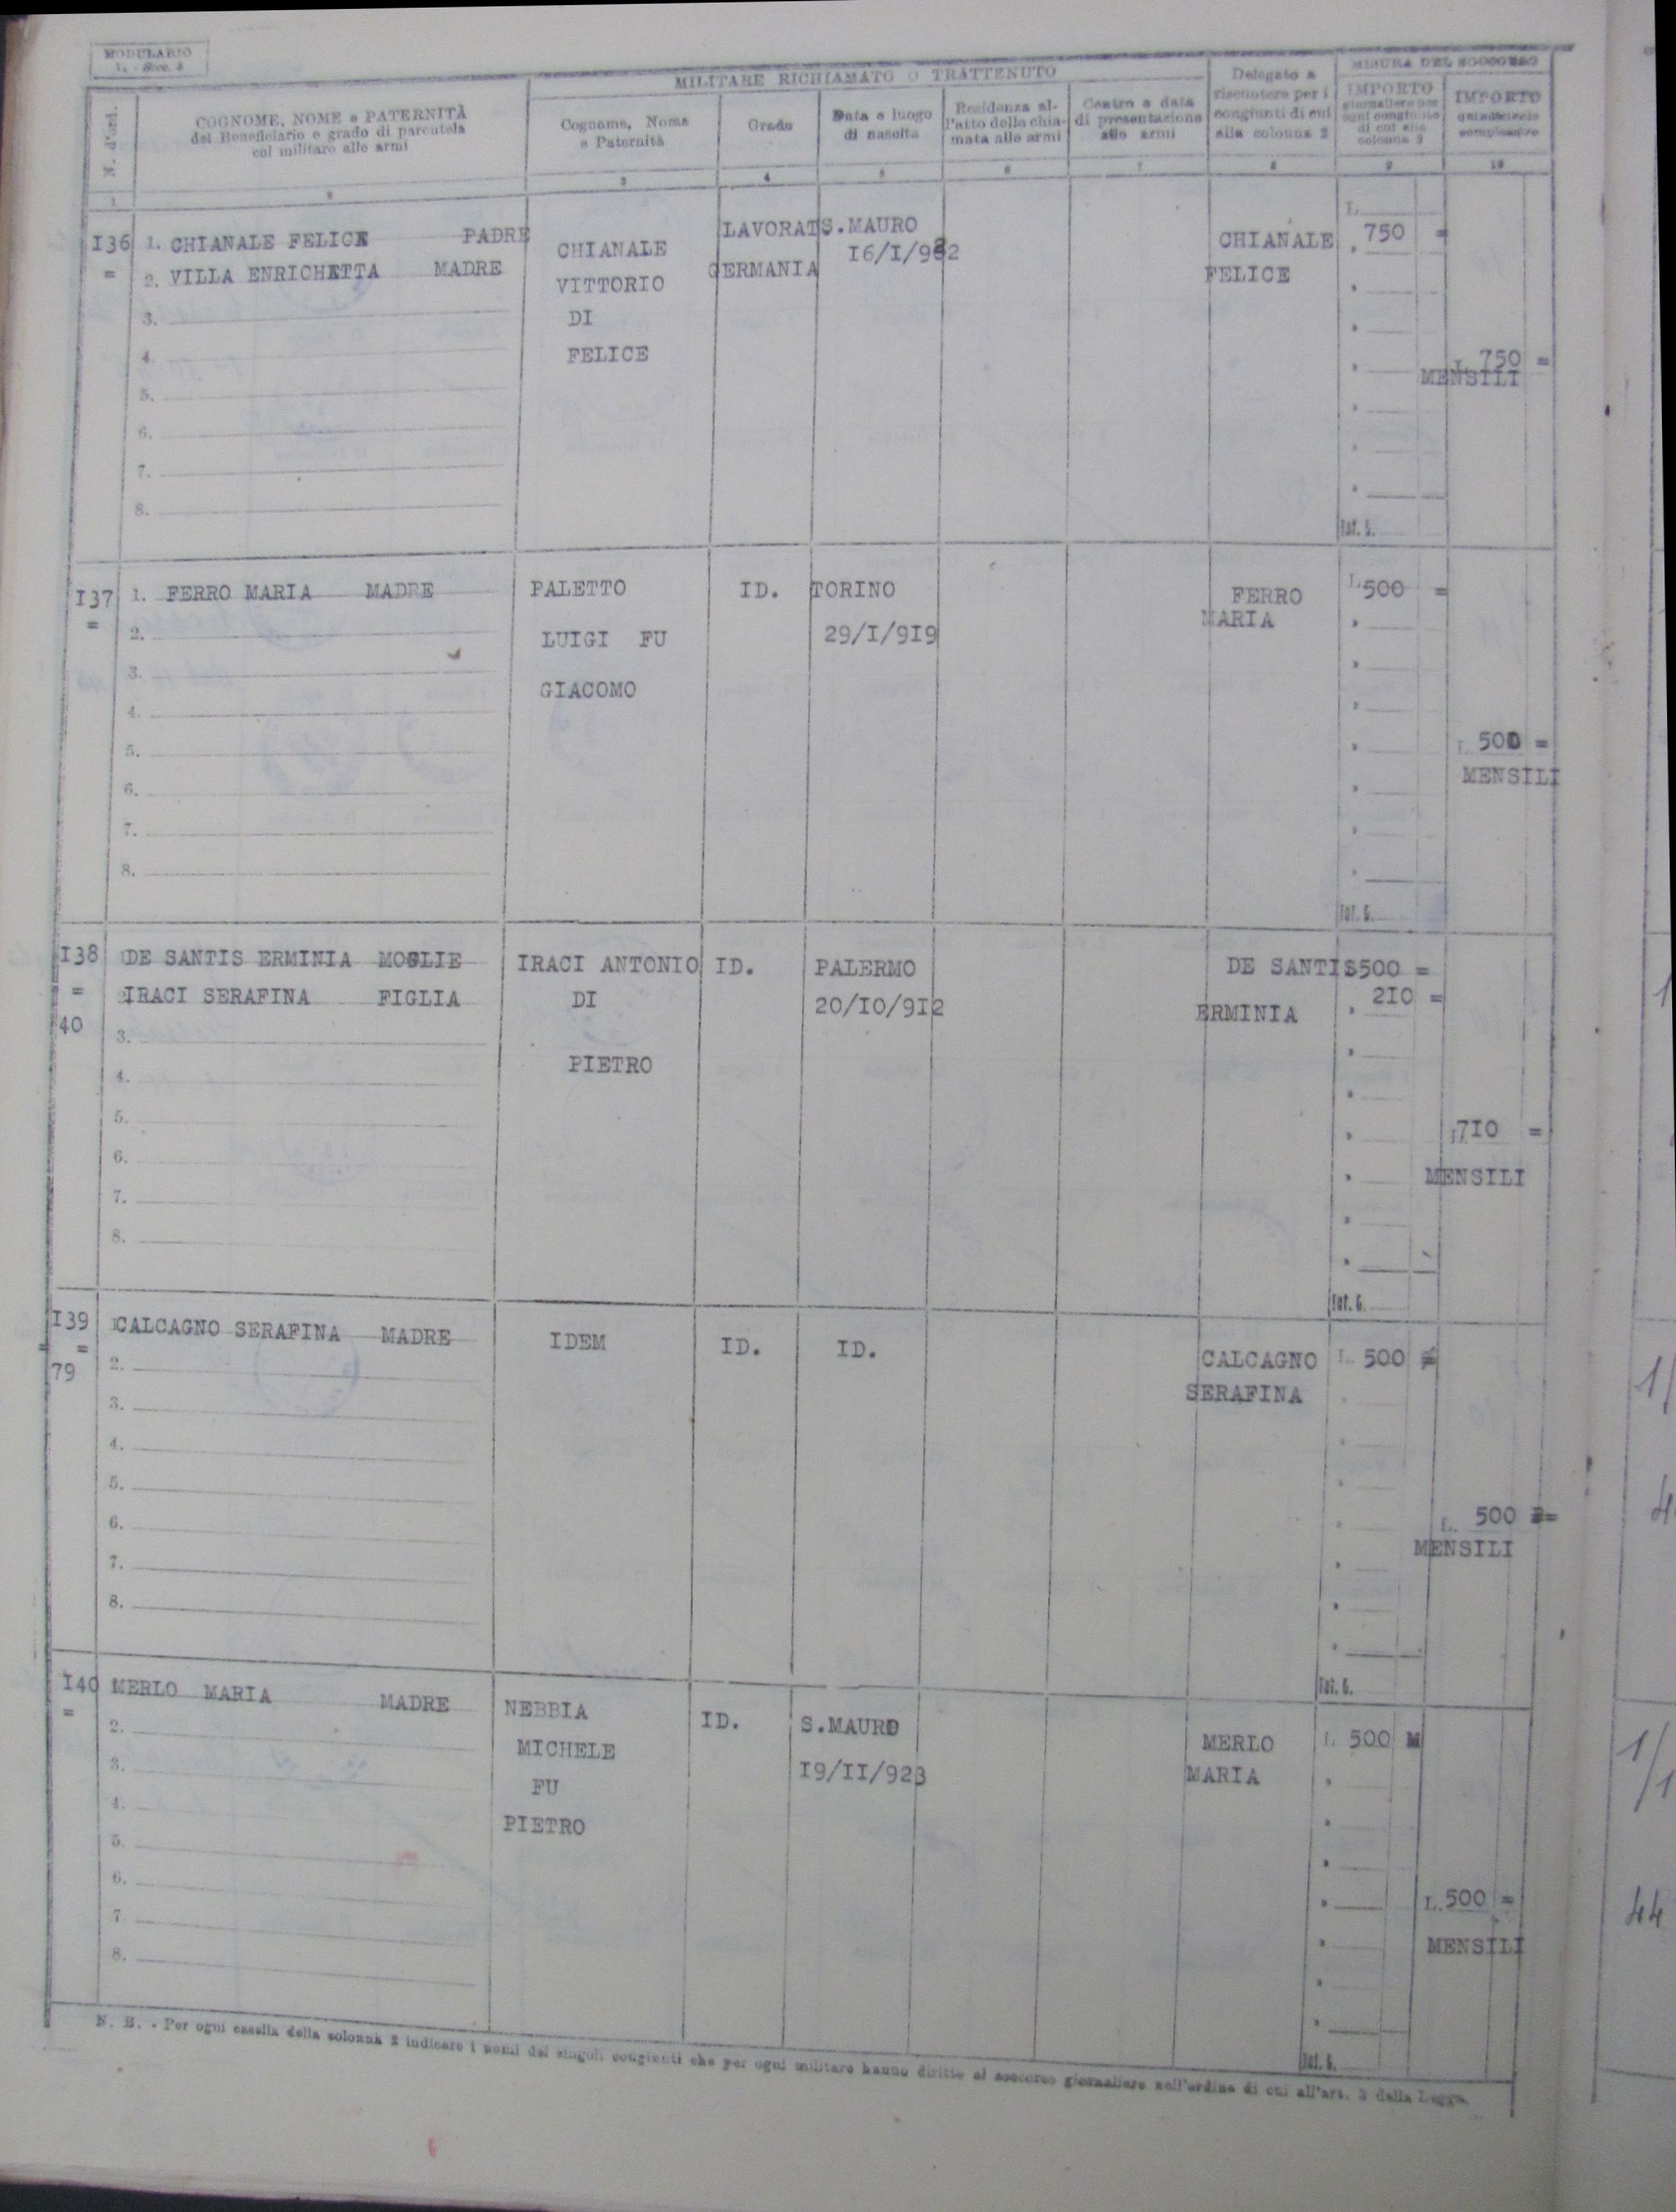 MODULARIO
MILITARE RICHIAMATO O TRATTENUTO
MISURA DEL SOCCORSO
N. d'ord.
COGNOME, NOME e PATERNITÀ
del Beneficiario e grado di parentela
col militare alle armi
Cognome, Nome
e Paternità
Grado
Data e luogo
di nascita
Residenza al-
l'atto della chia-
mata alle armi
Centro e data
di presentazione
alle armi
Delegato a
riscuotere per i
congiunti di cui
alla colonna 2
IMPORTO
giornaliero per
ogni congiunto
di cui alla
colonna 2
IMPORTO
1 2 3 4 5 6 7 8 9 10
I36
=
1. CHIANALE FELICE PADRE
2. VILLA ENRICHETTA MADRE
3.
4.
5.
6.
7.
8.
CHIANALE
VITTORIO
DI
FELICE
LAVORAT
GERMANIA
S.MAURO
16/I/922
CHIANALE
FELICE
L.
750 =
Tot. G.
L. 750 =
MENSILI
I37
=
1. FERRO MARIA MADRE
2.
3.
4.
5.
6.
7.
8.
PALETTO
LUIGI FU
GIACOMO
ID.
TORINO
29/I/9I9
FERRO
MARIA
L. 500 =
Tot. G.
L. 500 =
MENSILI
I38
=
40
DE SANTIS ERMINIA MOGLIE
IRACI SERAFINA FIGLIA
3.
4.
5.
6.
7.
8.
IRACI ANTONIO
DI
PIETRO
ID.
PALERMO
20/IO/9I2
DE SANTIS
ERMINIA
500 =
2IO =
Tot. G.
7IO =
MENSILI
I39
=
79
CALCAGNO SERAFINA MADRE
2.
3.
4.
5.
6.
7.
8.
IDEM
ID.
ID.
CALCAGNO
SERAFINA
L. 500 =
Tot. G.
L. 500 =
MENSILI
I40
=
MERLO MARIA MADRE
2.
3.
4.
5.
6.
7.
8.
NEBBIA
MICHELE
FU
PIETRO
ID.
S.MAURO
I9/II/923
MERLO
MARIA
L. 500
Tot. G.
L. 500 =
MENSILI
N. B. - Per ogni casella della colonna 2 indicare i nomi dei singoli congiunti che per ogni militare hanno diritto al soccorso giornaliero nell'ordine di cui all'art. 2 della Legge.
1/
4
1/1
44